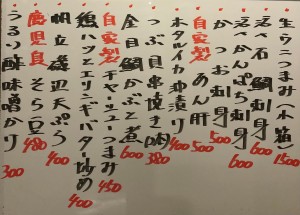 生ウニつまみ(小箱) 1500
活〆石鯛刺身 600
活〆かんぱち刺身 600
かつお刺身 500
自家製 あん肝 500
ホタルイカ沖漬け 400
つぶ貝串焼き 380
金目鯛かぶと煮 600
自家製チャーシューつまみ 450
鶏ハツとエリンギバター炒め 400
帆立磯辺天ぷら 400
鹿児島 そら豆 480
うるり酢味噌がけ 300